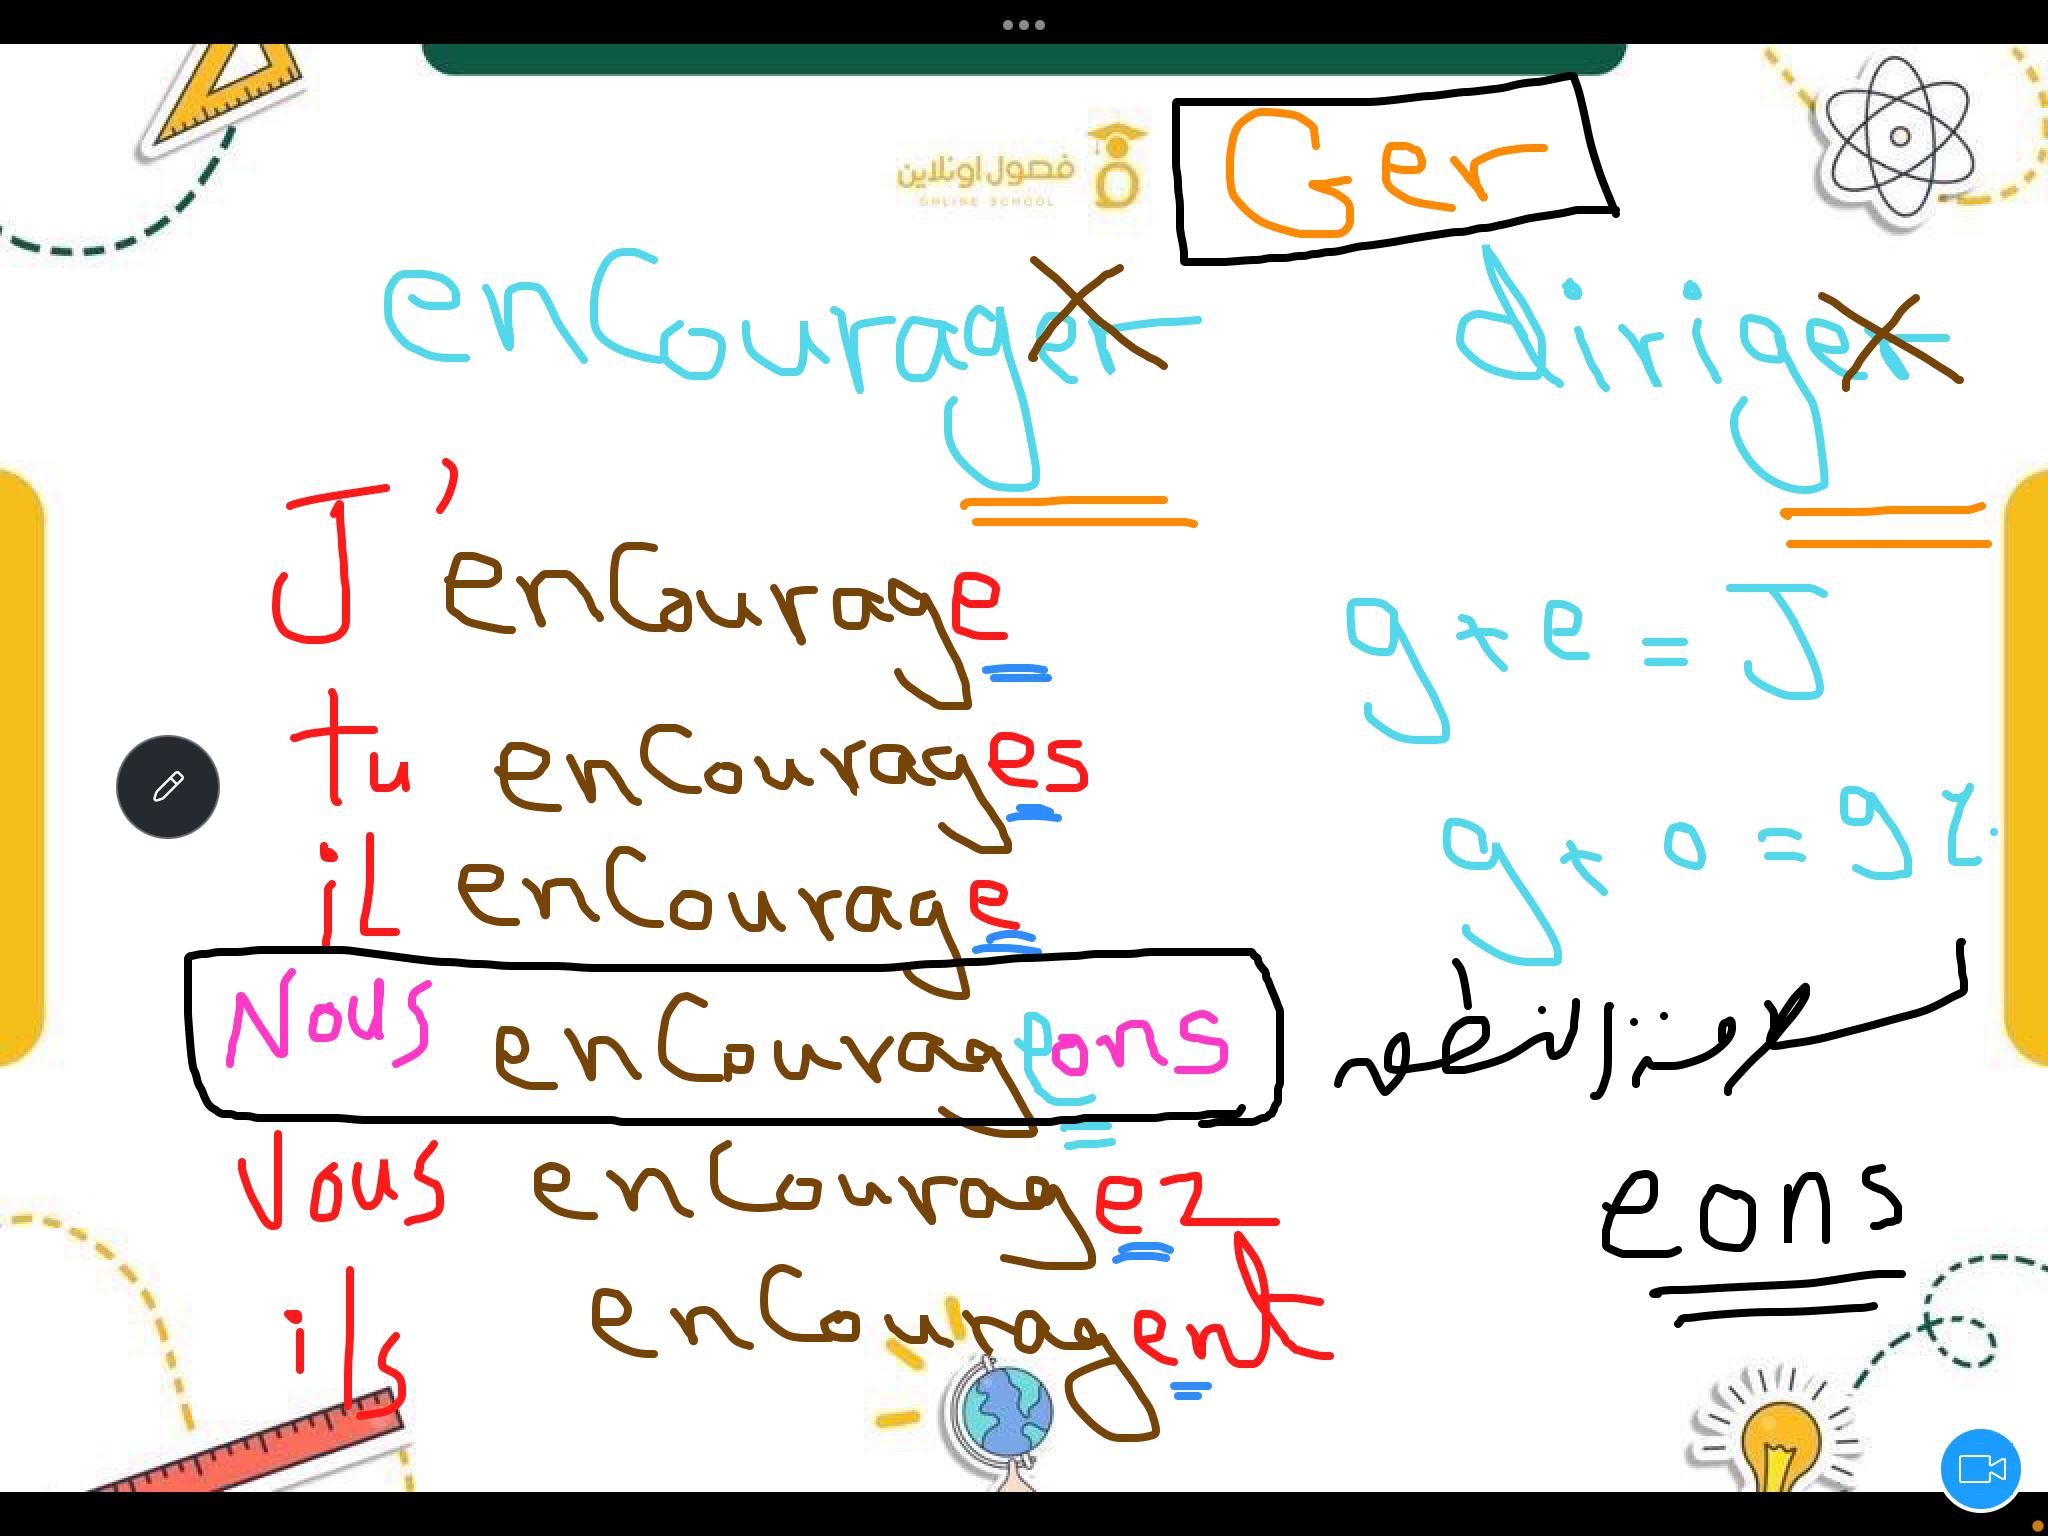 فصول اونلاين
ONLINE SCHOOL
Ger
enCourager diriger
J' enCourage
g + e = J
tu enCourages
g + o = gغ
iL enCourage
Nous enCourageons
eons
Vous enCouragez
ils enCouragent